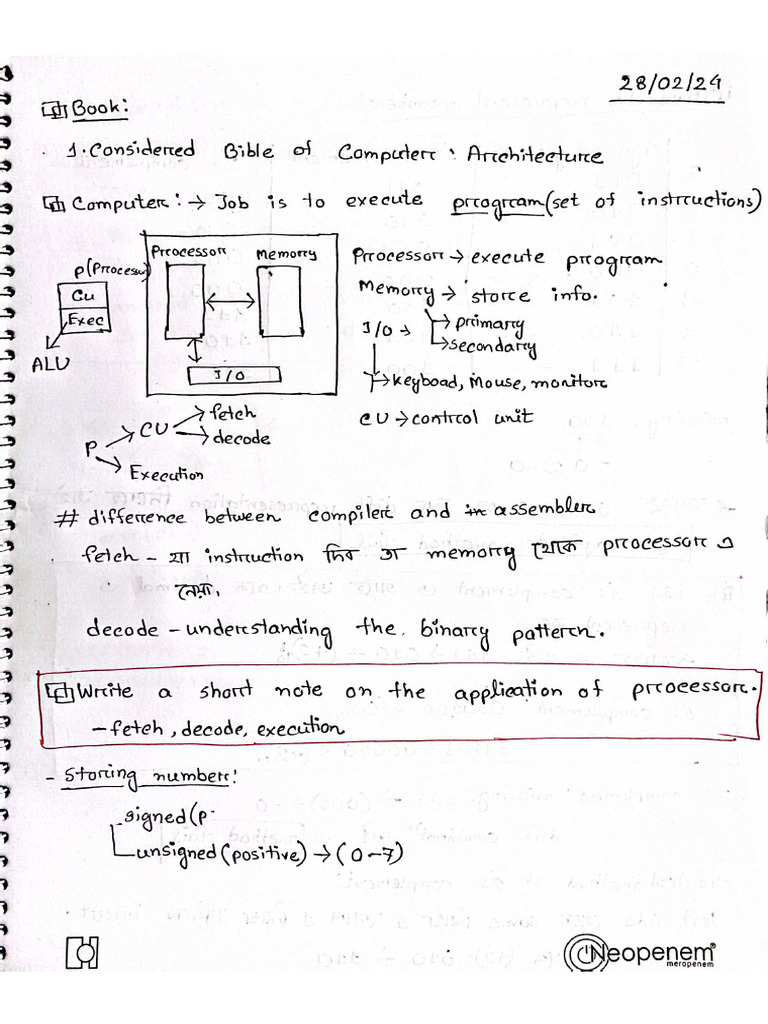 28/02/24
Book:
1. Considered Bible of Computer : Architecture
Computer: → Job is to execute program (set of instructions)
P(Processor)
Cu
Exec
ALU
Processor
Memory
I/O
Processor → execute program
Memory → store info.
I/O →
primary
secondary
keyboad, Mouse, monitor
CU → control unit
P → CU → fetch
→ decode
→ Execution
# difference between compiler and assembler
fetch – যা instruction নিব তা memory থেকে processor এ
নেয়া,
decode – understanding the binary pattern.
Write a short note on the application of processor.
– fetch, decode, execution
- Storing number:
signed (p
unsigned (positive) → (0–7)
Neopenem®
meropenem